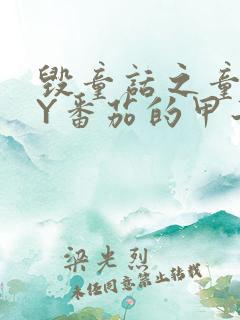 毁童话之童
Y番茄的甲
梁光烈
未经同意禁止转载